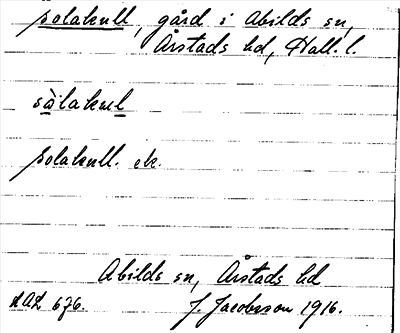 Solakull, gård i Abilds sn,
Årstads hd, Hall. l.
sàlakul
Solakull. ek.
Abilds sn, Årstads hd
NAL 676. J. Jacobsson 1916.